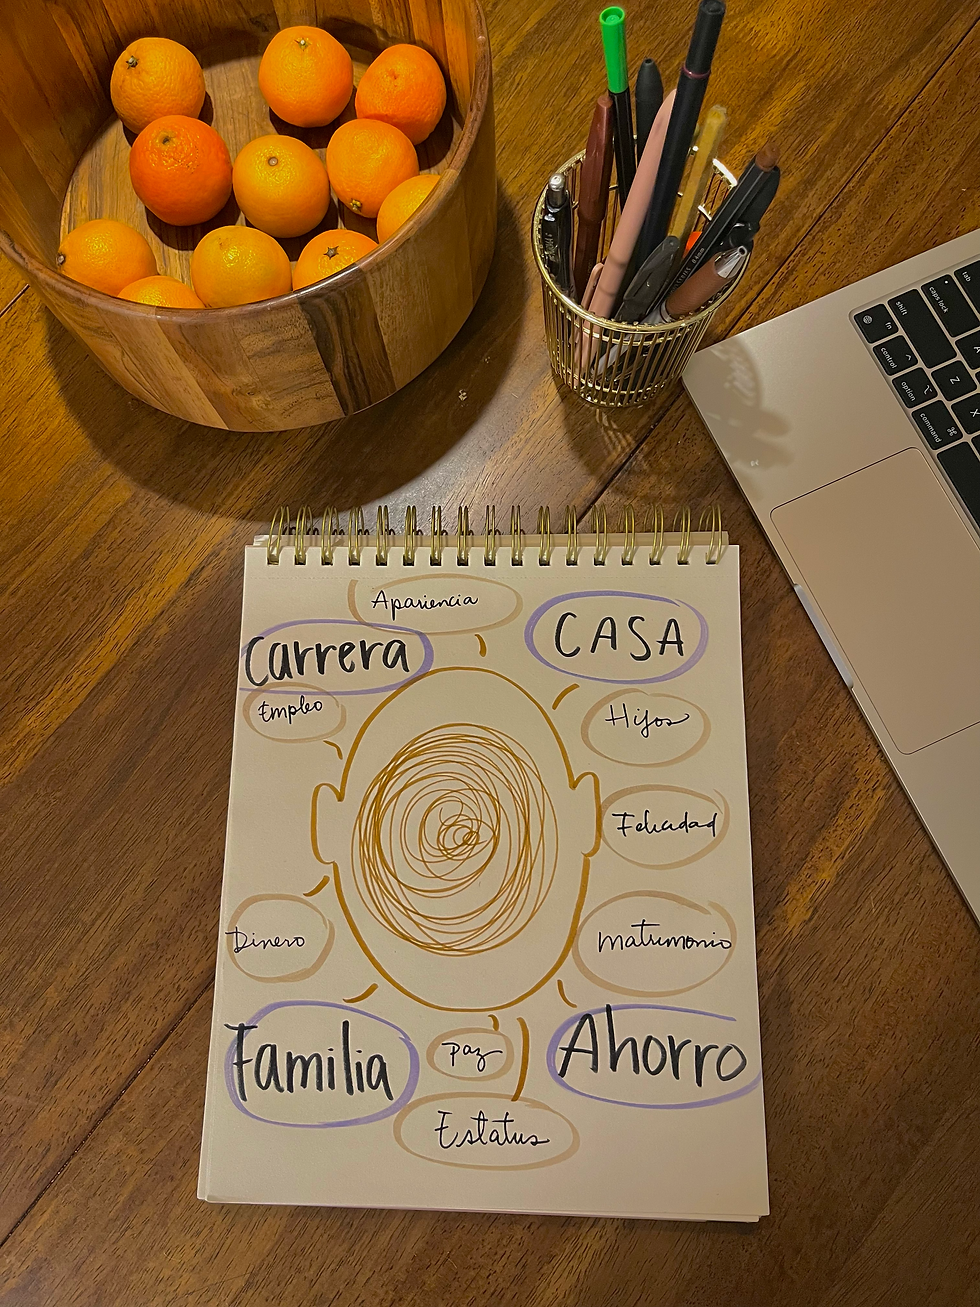 Apariencia
Carrera
CASA
Empleo
Hijos
Felicidad
Dinero
matrimonio
Familia
paz
Ahorro
Estatus
tab
caps lock
shift
fn
control
option
command
Z
X
A